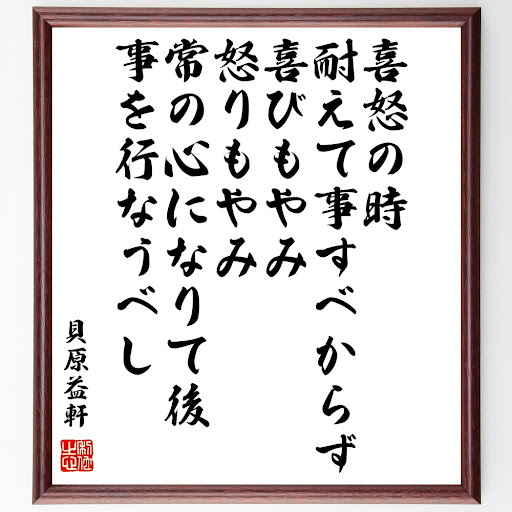 喜怒の時
耐えて事すべからず
喜びもやみ
怒りもやみ
常の心になりて後
事を行なうべし
貝原益軒